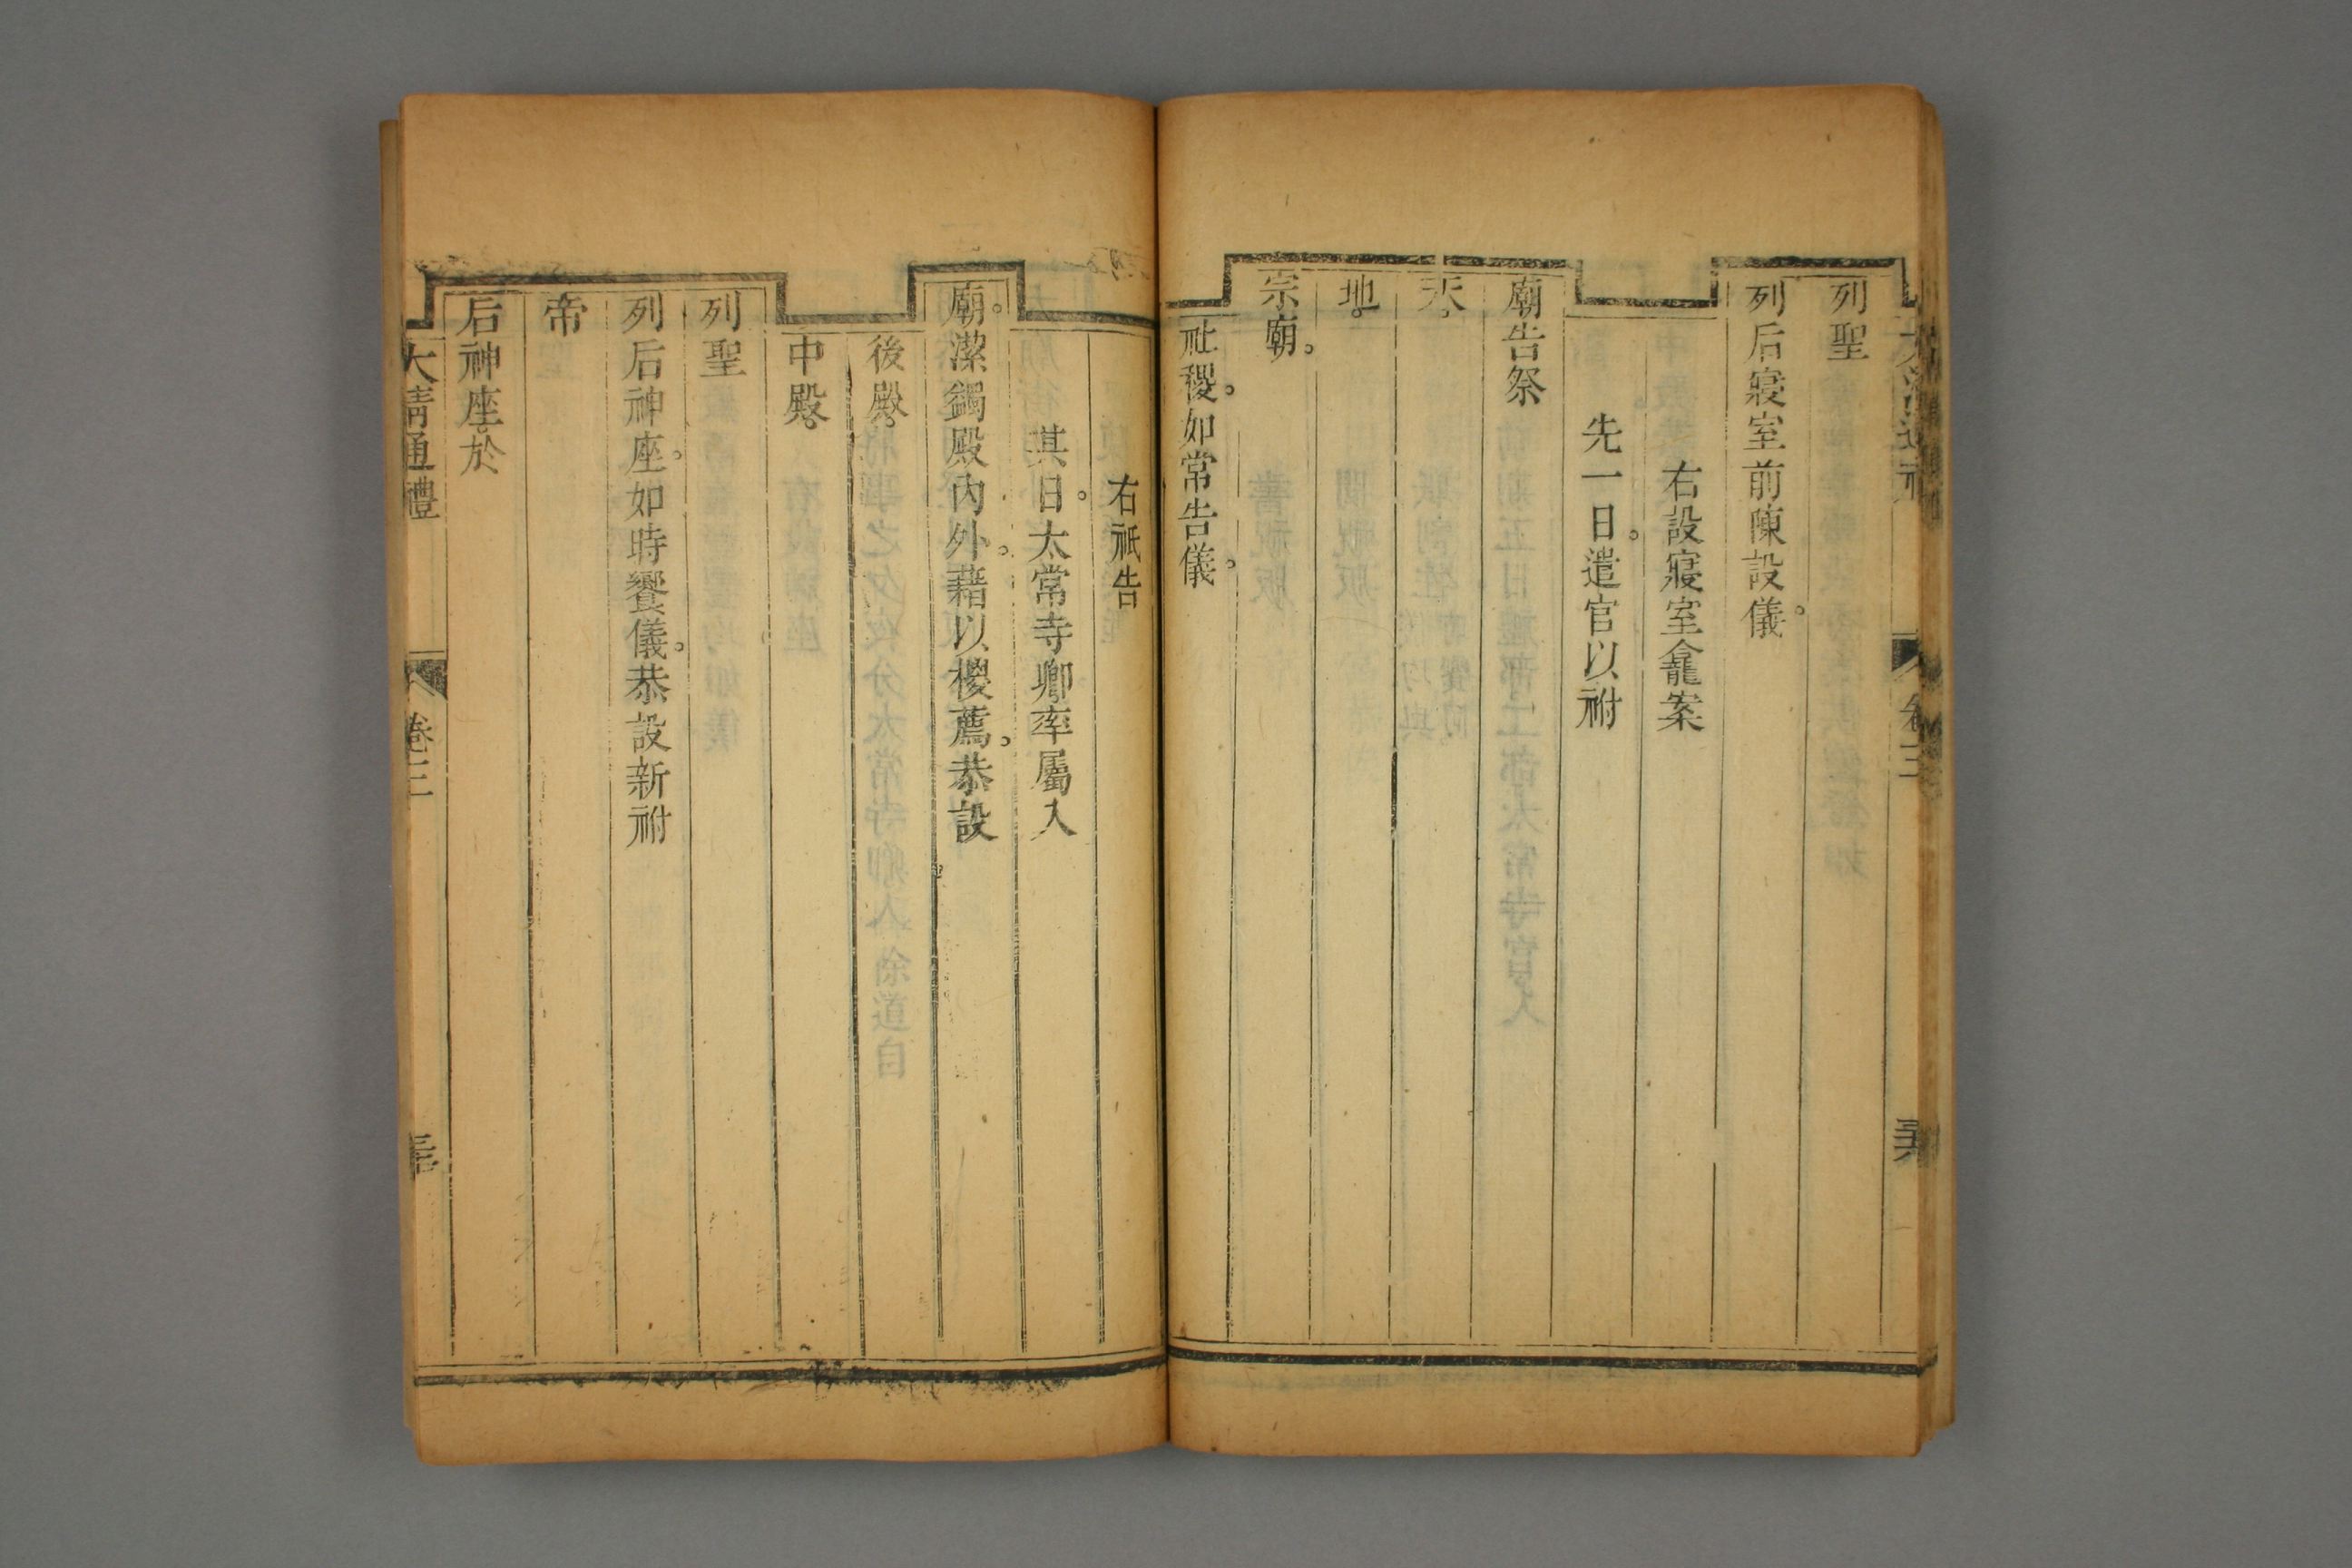 列聖
列后寢室前陳設儀。
右設寢室龕案
先一日。遣官以祔
廟告祭
天。
地。
宗廟。
社稷。如常告儀。
右祇告
其日。太常寺卿率屬入
廟。潔蠲殿內外。藉以椶薦。恭設
後殿。
中殿。
列聖
列后神座。如時饗儀。恭設新祔
帝
后神座。於
大清通禮
卷三